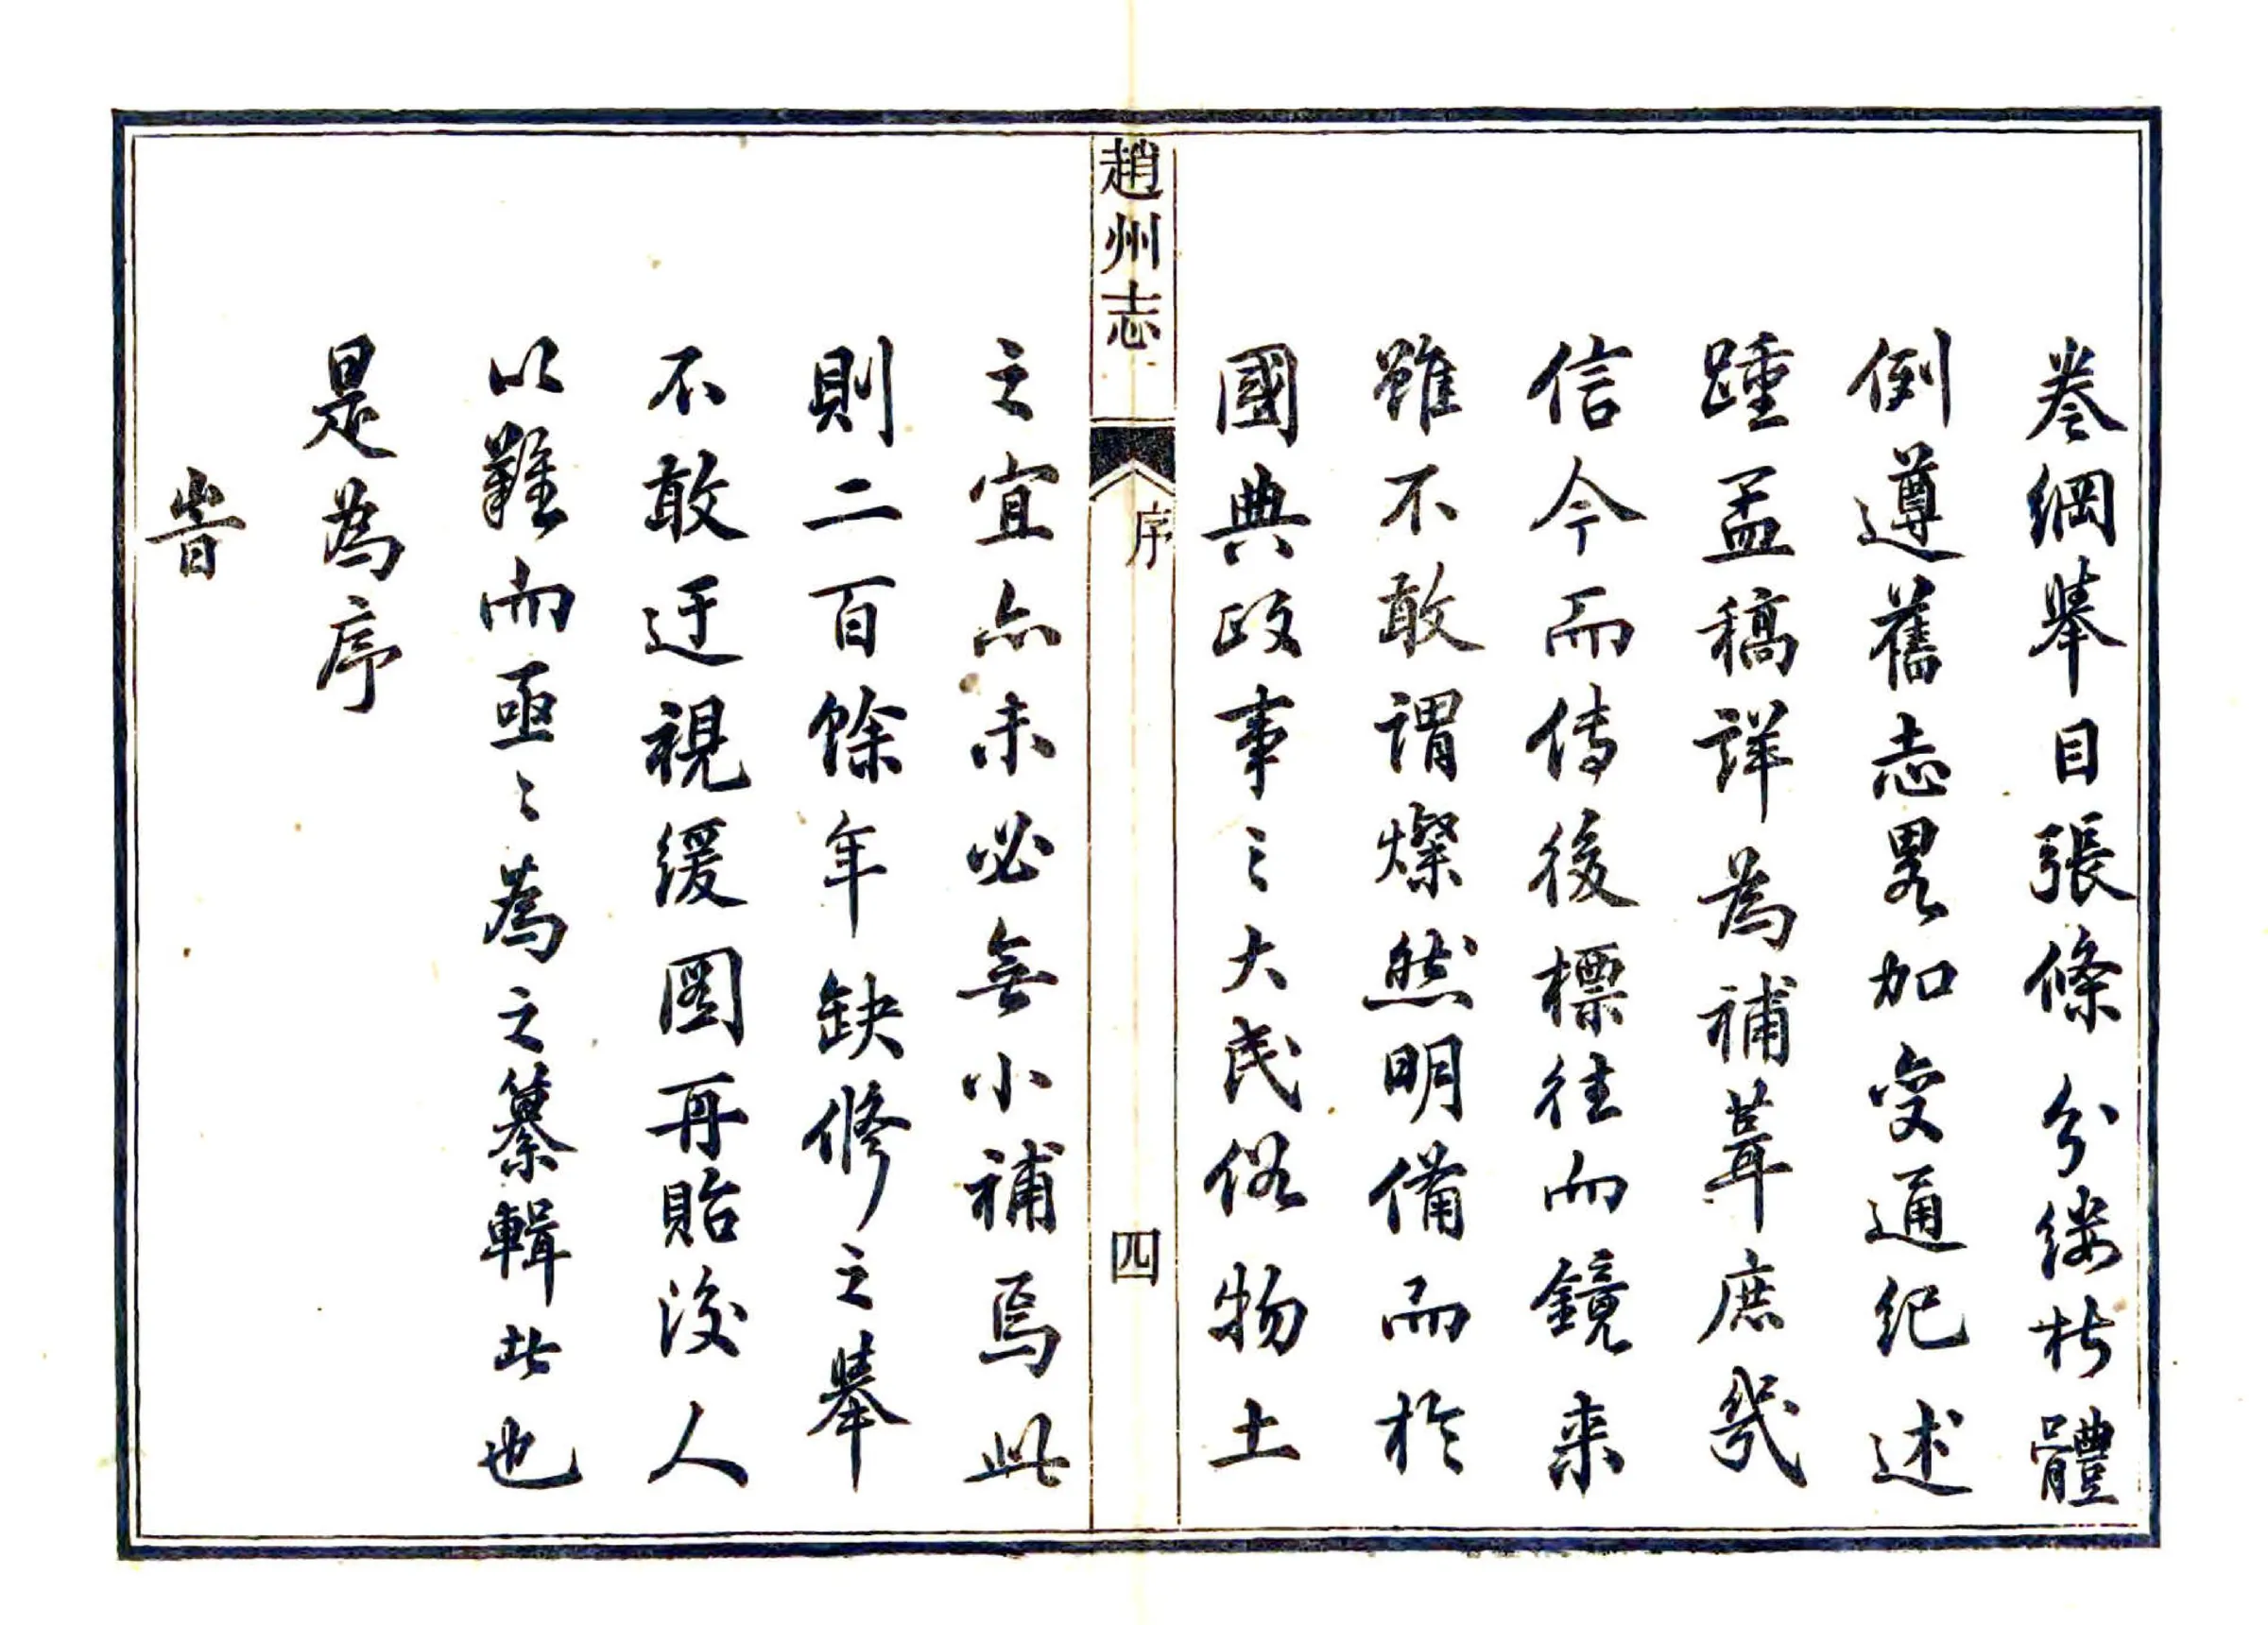 卷綱舉目張條分縷析體
例遵舊志畧加变通紀述
踵孟稿詳為補葺庶幾
信今而傳後標往而鏡来
雖不敢謂燦然明備而於
國典政事之大民俗物土
趙州志
序
四
之宜亦未必無小補焉此
則二百餘年缺修之舉
不敢迂視緩圖再貽後人
以難而亟〻為之纂輯此也
是為序
旹